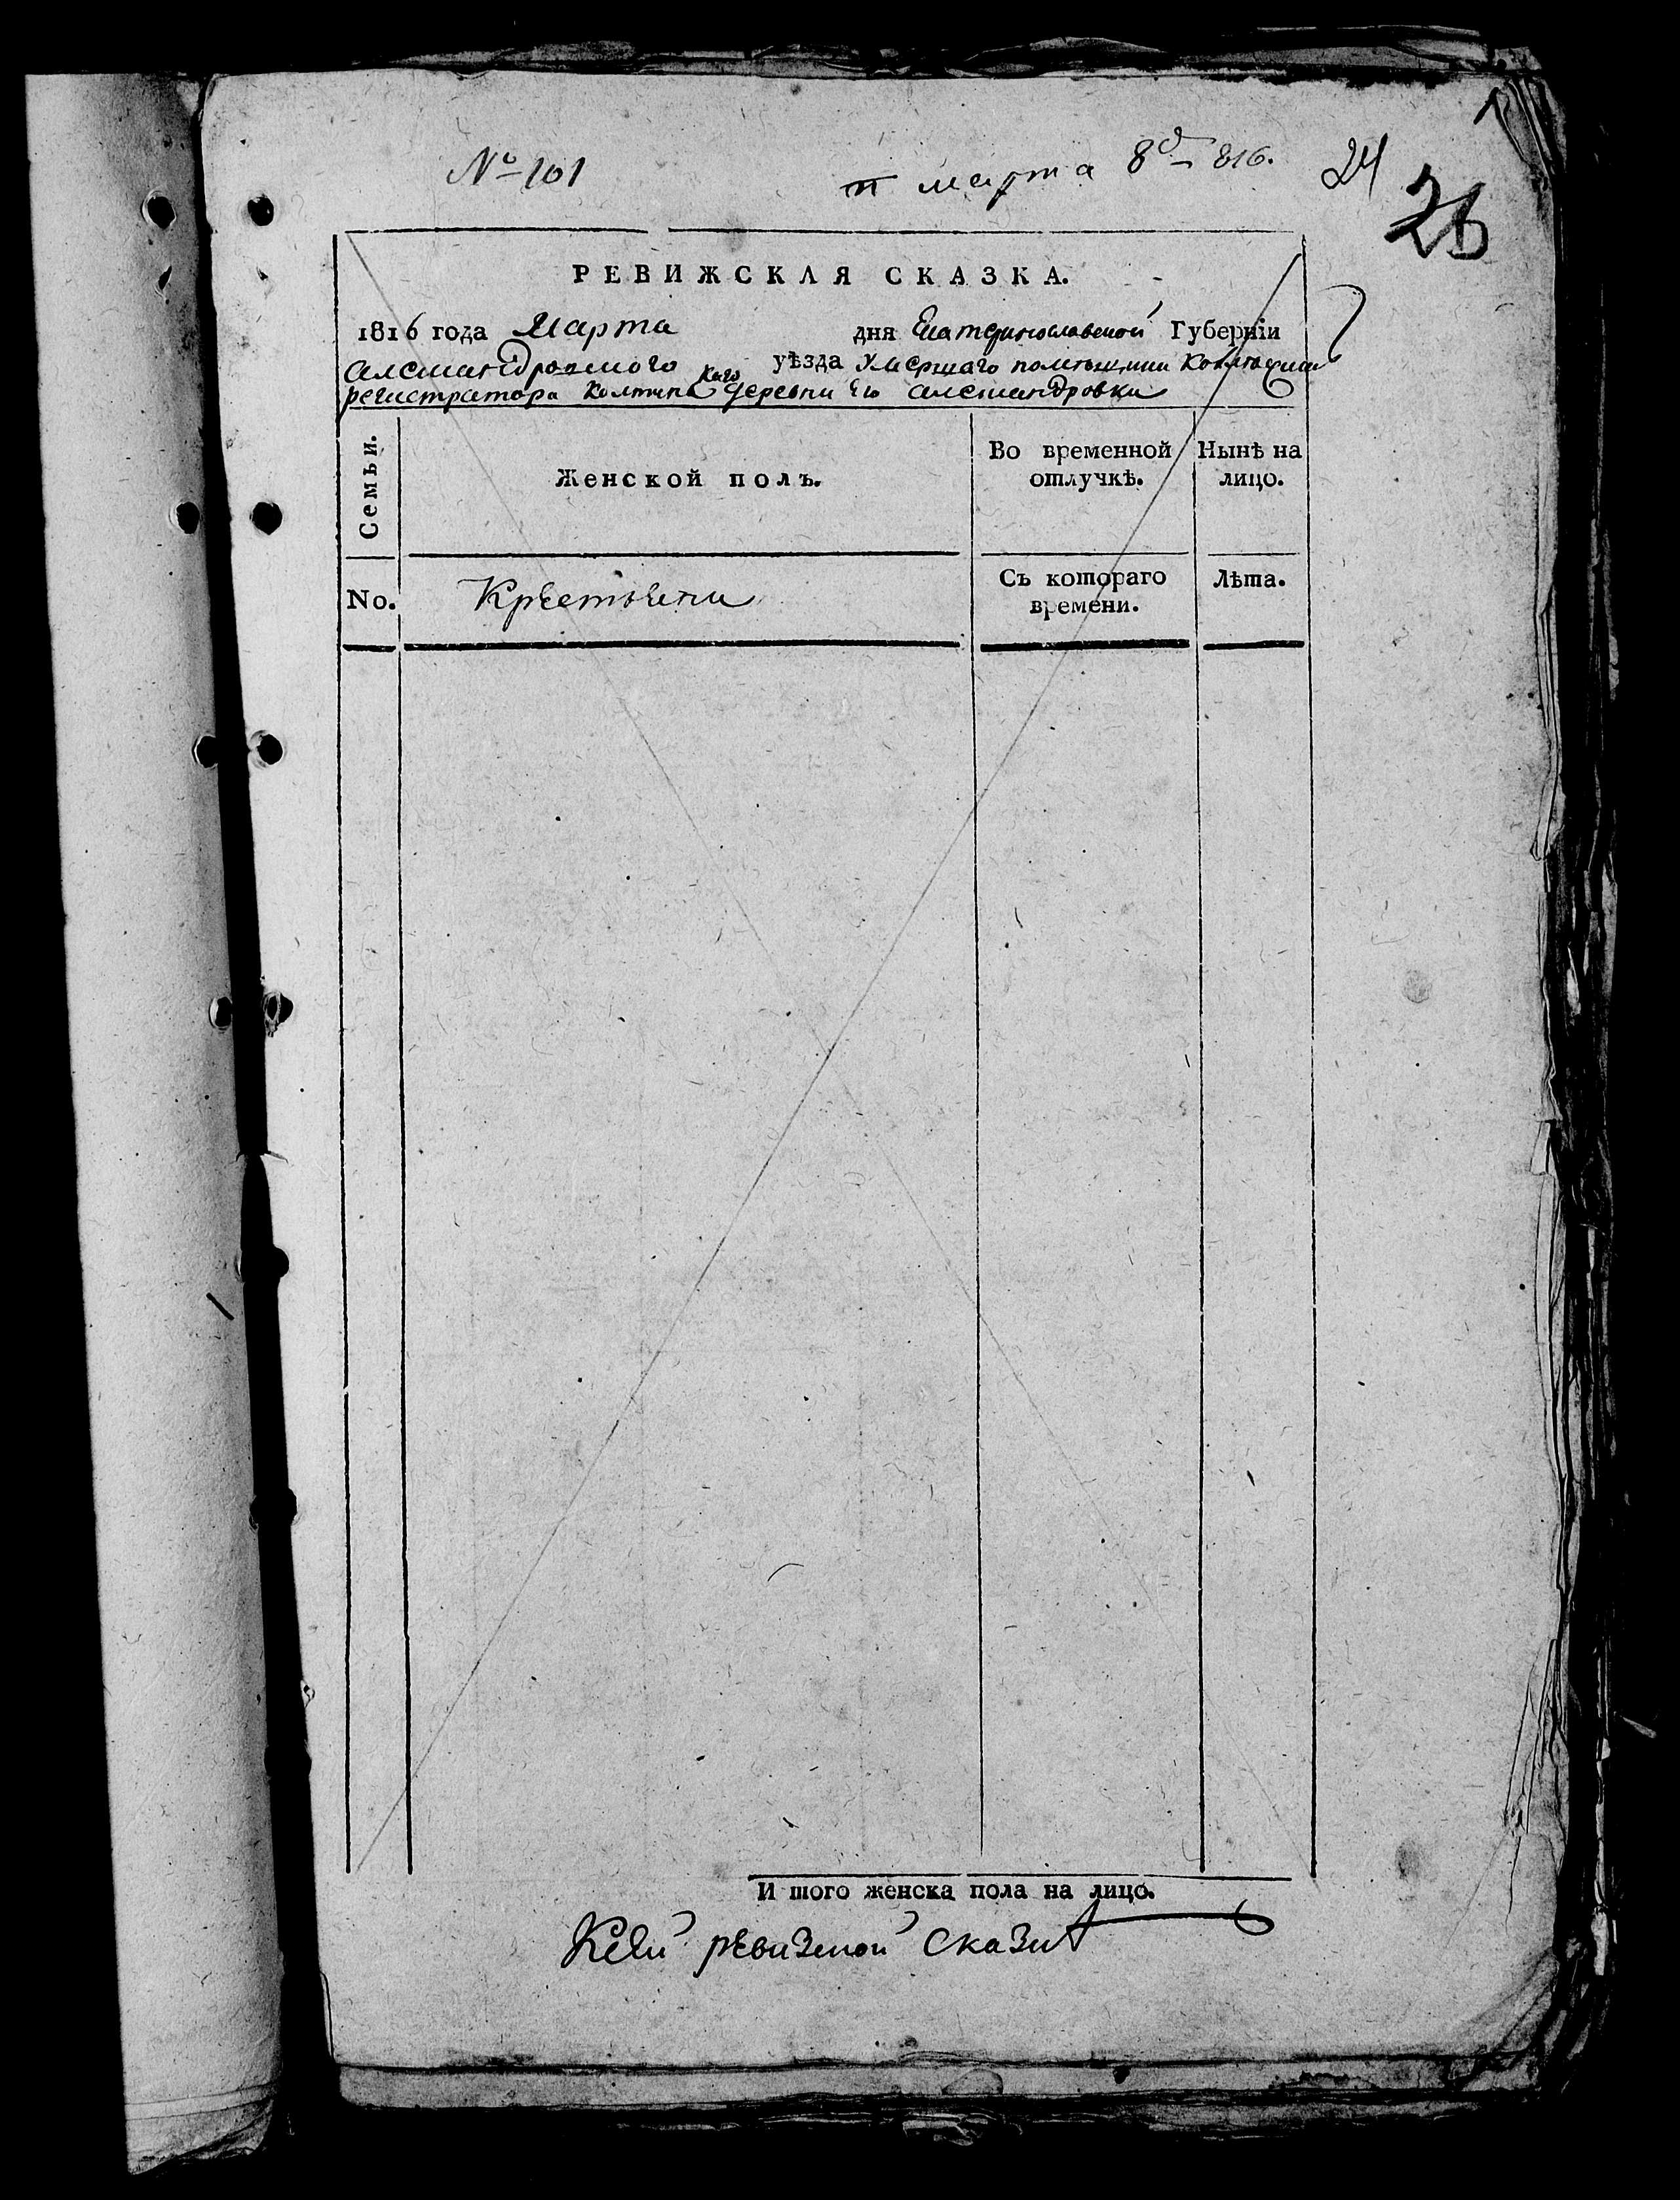 № 101
марта 8д 816.
24
26
РЕВИЖСКАЯ СКАЗКА.
1816 года Марта дня Екатеринославской Губернїи
Александровского уѣзда Умершаго
регистратора деревни Его Александровки
Семьи.
Женской полъ.
Во временной отлучкѣ.
Нынѣ на лицо.
No.
Крестьяни
Съ котораго времени.
Лѣта.
И того женска пола на лицо.
К сей ревиской Сказки